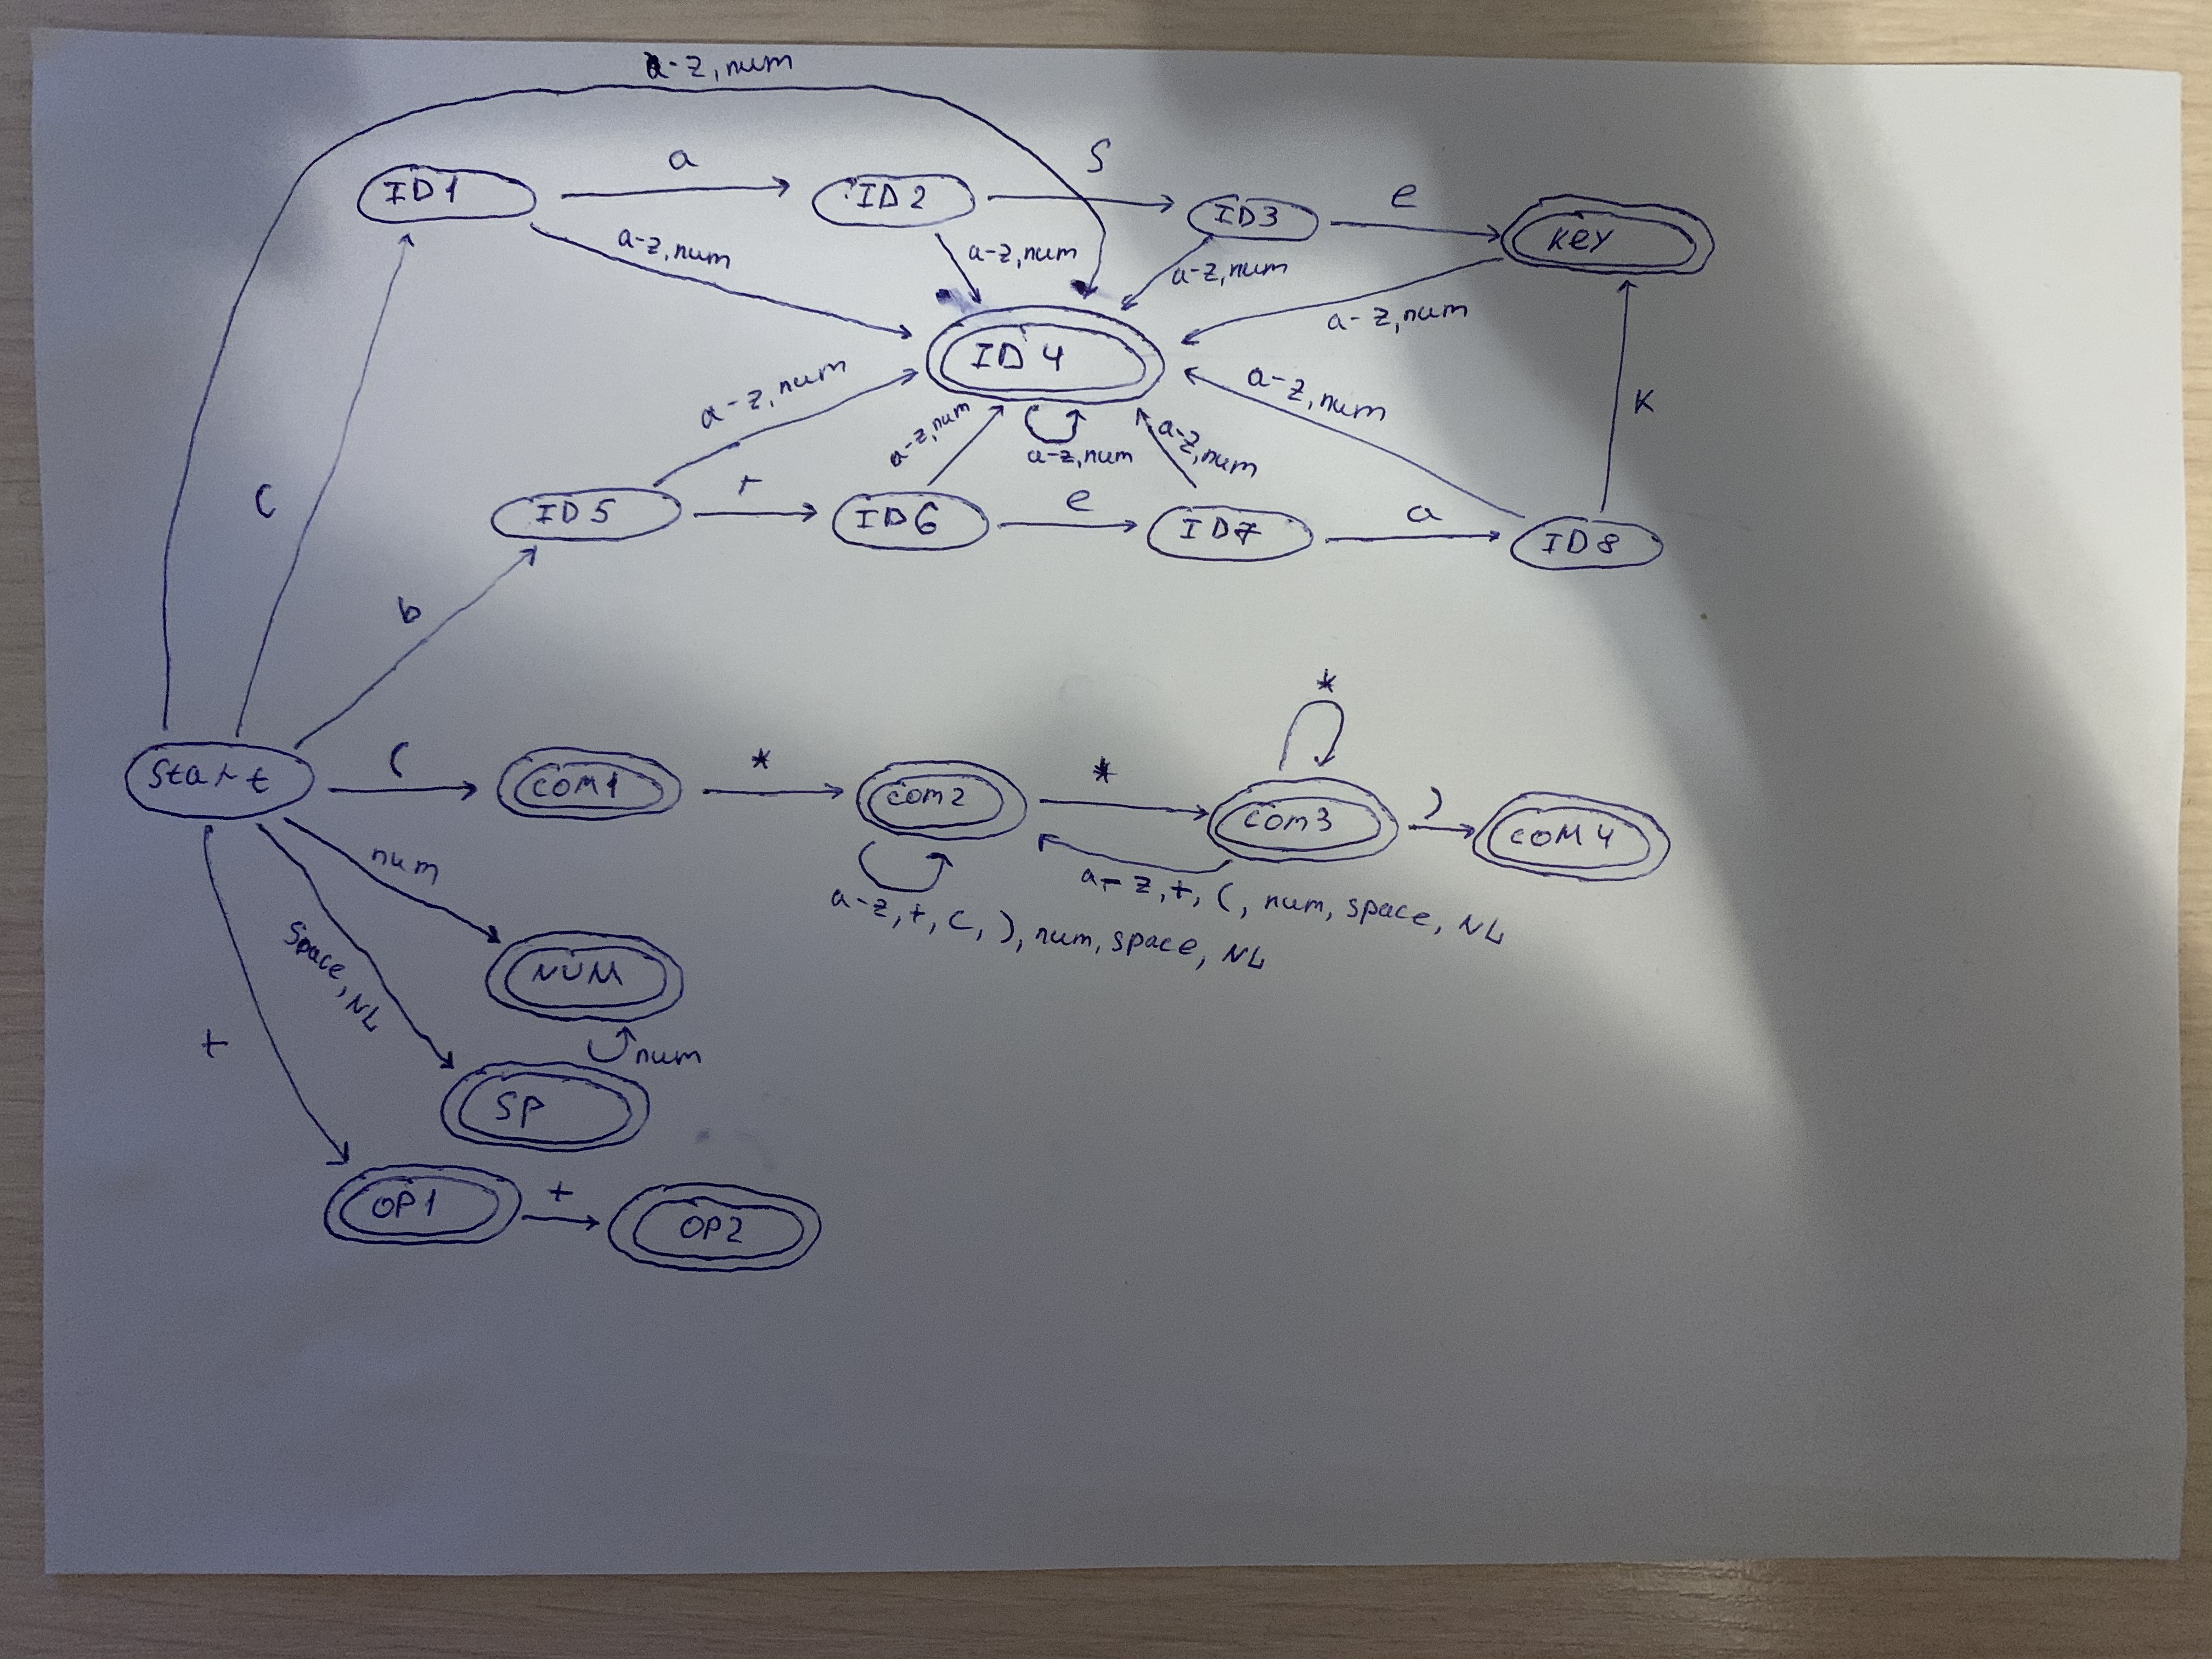 a-z, num
a
S
e
ID1
ID2
ID3
KEY
a-z, num
a-z, num
a-z, num
a-z, num
ID4
a-z, num
a-z, num
a-z, num
a-z, num
a-z, num
K
C
r
e
a
ID5
ID6
ID7
ID8
b
*
Start
(
COM1
*
com2
*
com3
)
COM4
num
a-z, +, (, num, space, NL
a-z, +, (, ), num, space, NL
Space, NL
NUM
+
num
SP
OP1
+
OP2